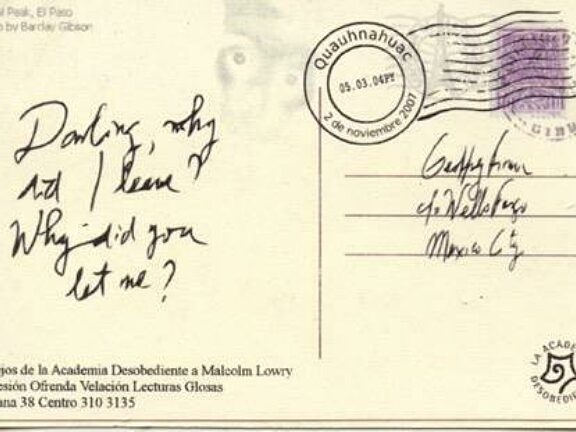 l Peak, El Paso
o by Barclay Gibson
Quauhnahuac
05.03.04PY
2 de noviembre 2007
Darling, why
did I leave?
Why did you
let me?
Geoffrey Firmin
c/o Wells Fargo
Mexico City
ejos de la Academia Desobediente a Malcolm Lowry
esión Ofrenda Velación Lecturas Glosas
ana 38 Centro 310 3135
LA ACADE
DESOBEDIE